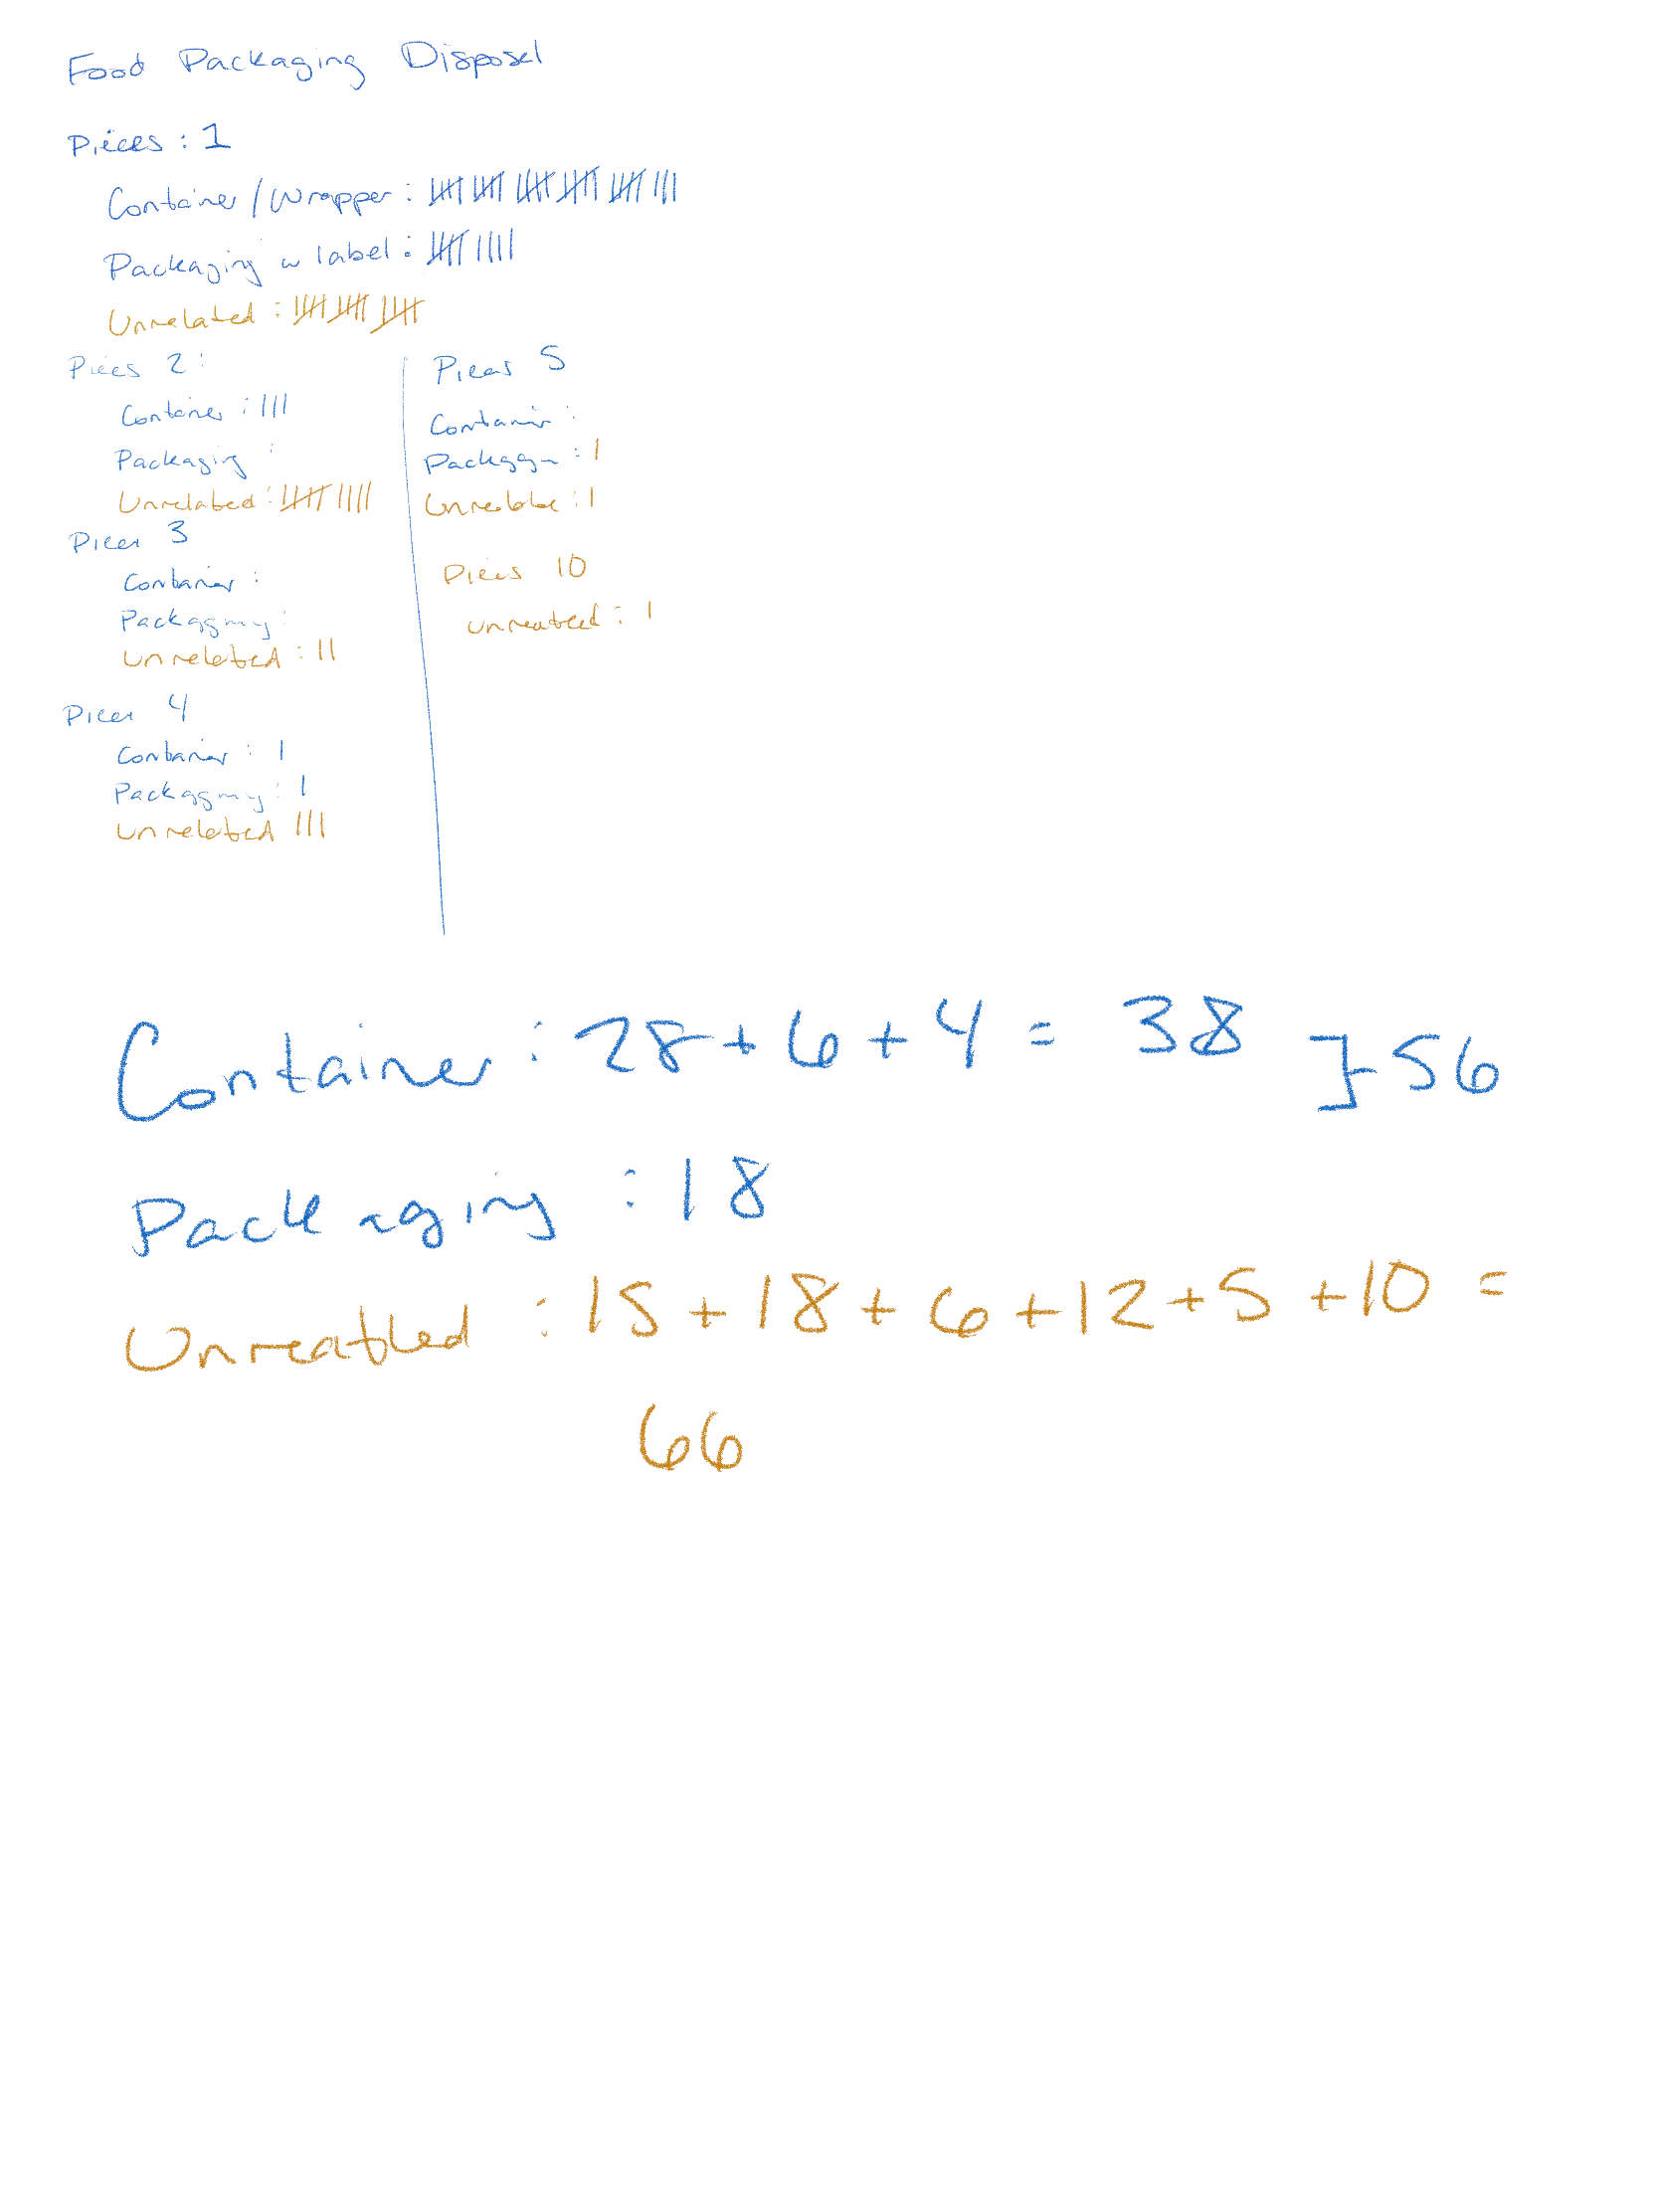 Food Packaging Disposal
Pieces : 1
Container/Wrapper : 卌 卌 卌 卌 卌 |||
Packaging w label : 卌 ||||
Unrelated : 卌 卌 卌
Pieces 2 :
Container : |||
Packaging :
Unrelated : 卌 ||||
Pieces 3
Container :
Packaging :
Unrelated : ||
Pieces 4
Container : |
Packaging : |
Unrelated |||
Pieces 5
Container :
Packaging : |
Unrelated : |
Pieces 10
unrelated : |
Container : 28 + 6 + 4 = 38 } 56
Packaging : 18
Unrelated : 15 + 18 + 6 + 12 + 5 + 10 =
66